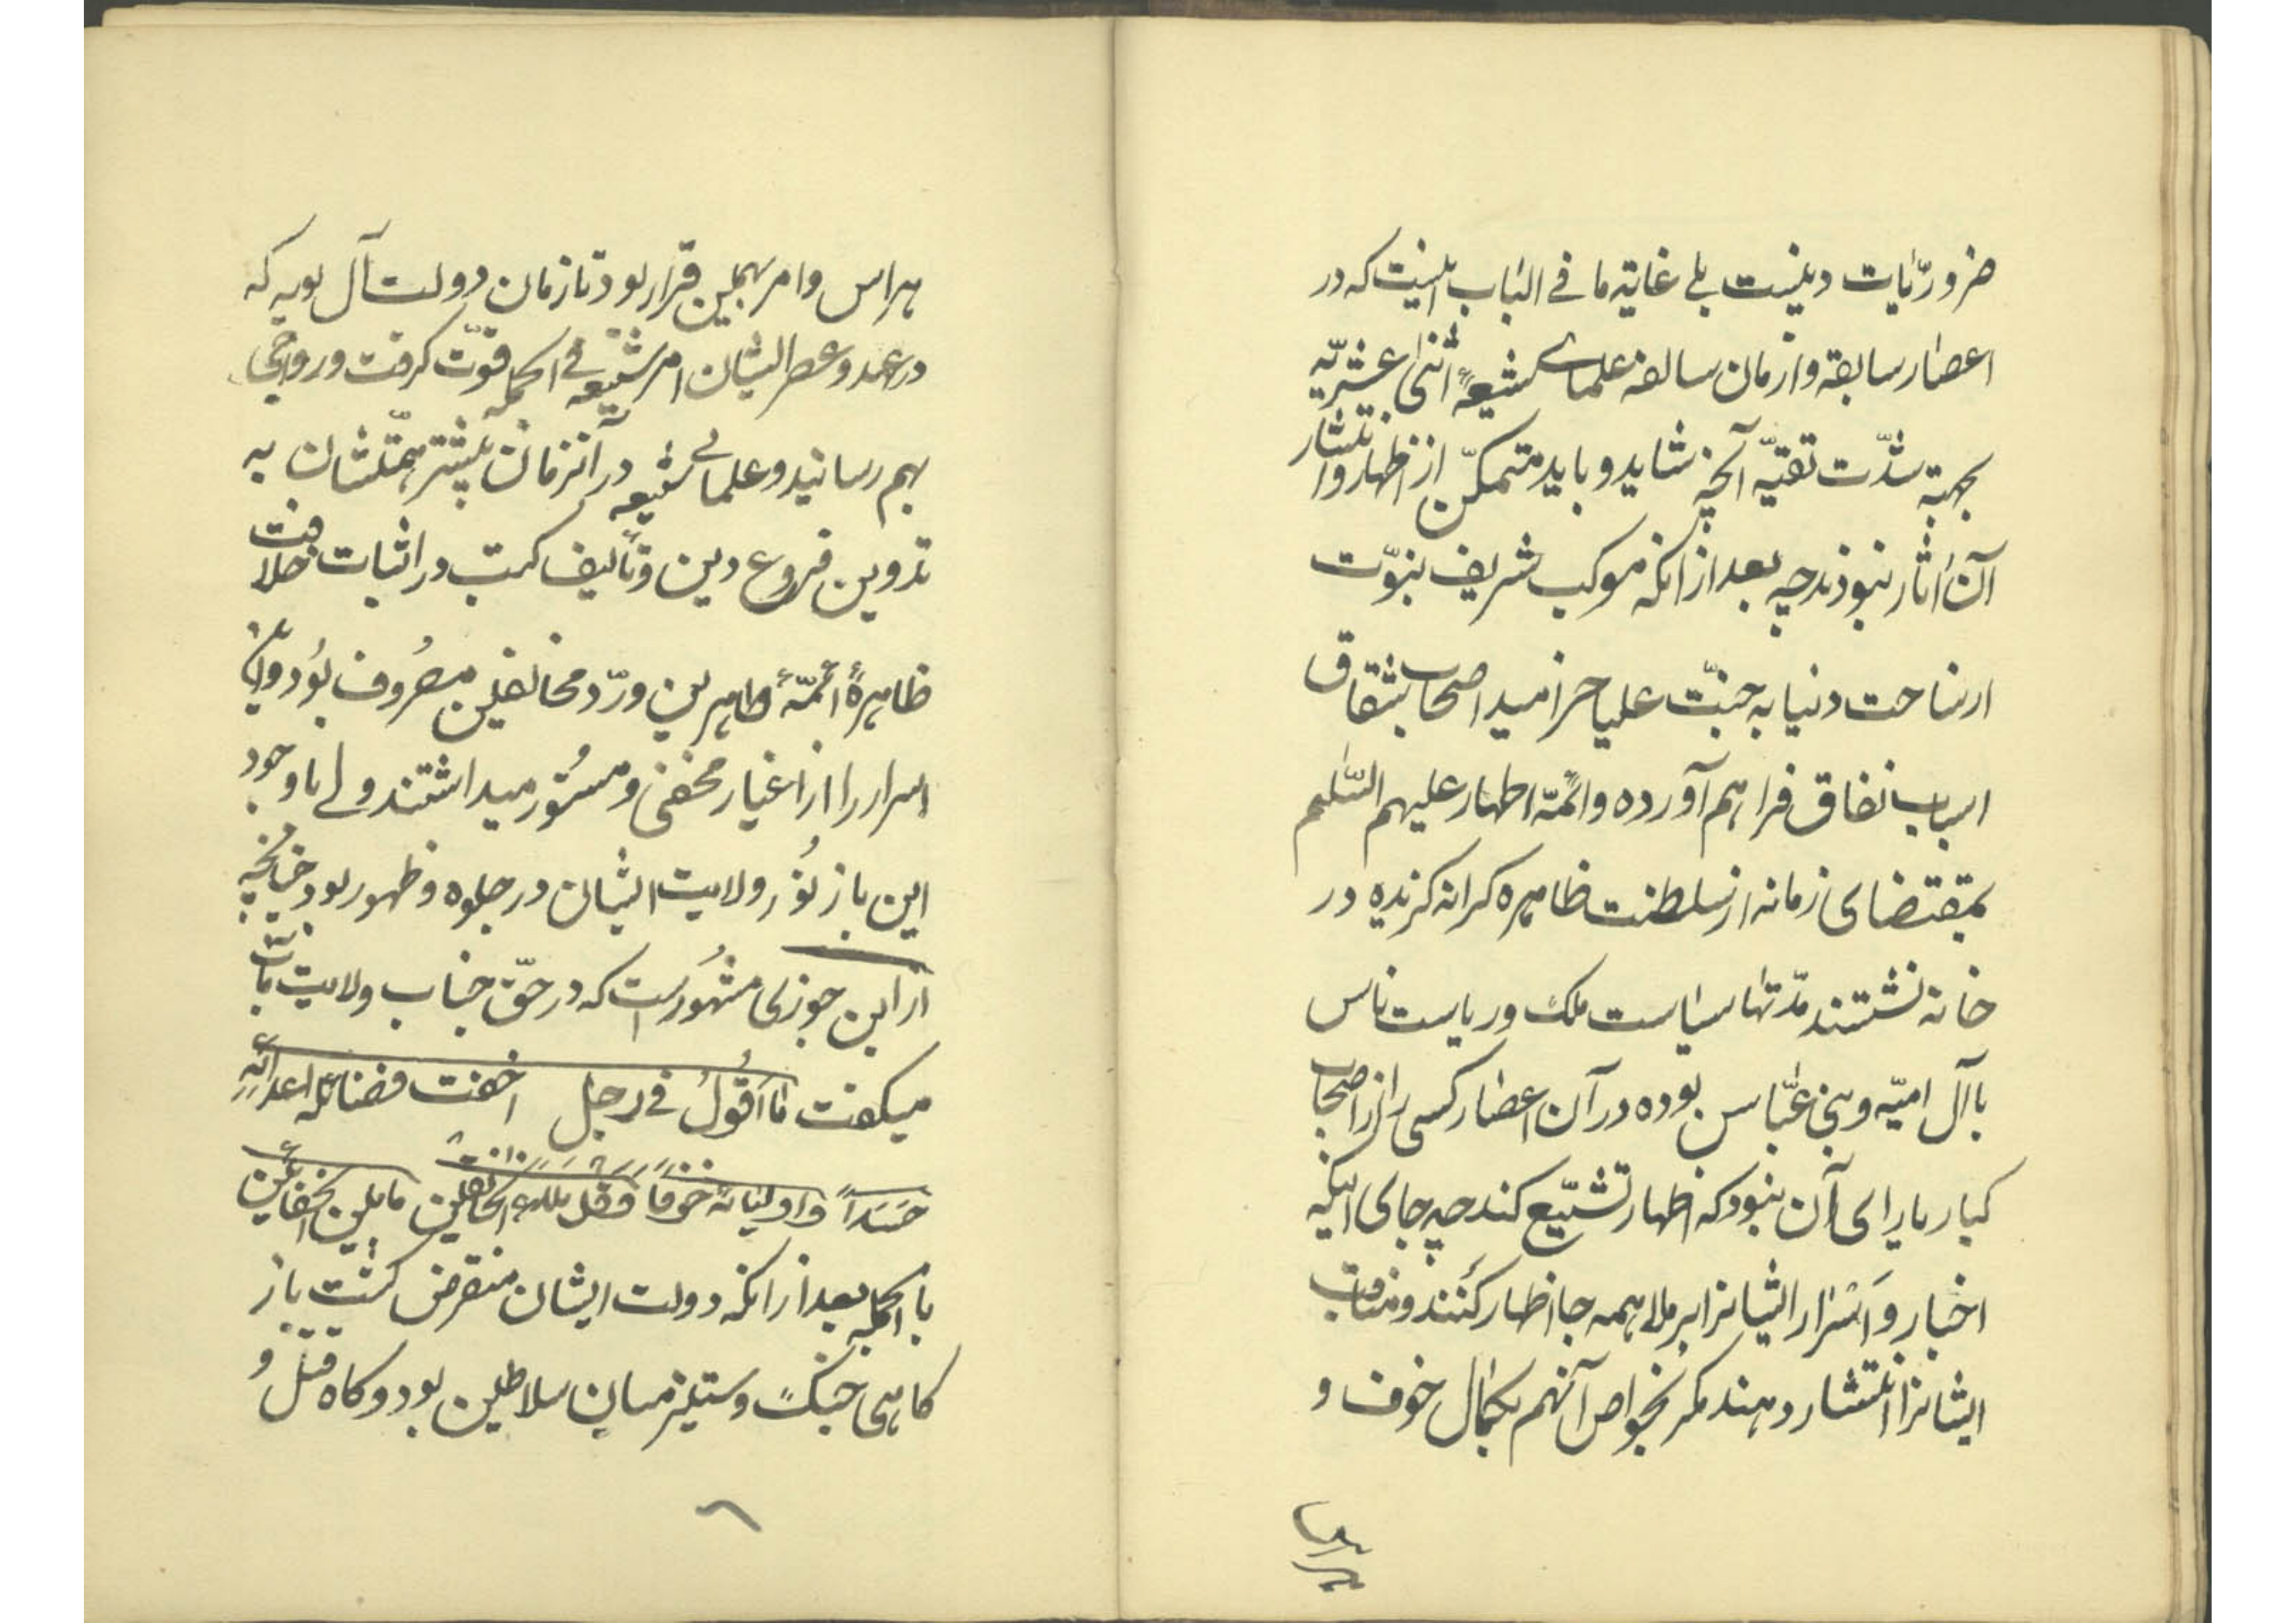 ضروریّات دینست بلی غایة ما فی الباب اینست که در
اعصار سابقه و ازمان سالفه علمای شیعهٔ اثنی عشریّه
بجهة شدّت تقیّه آنچه شاید و باید متمکّن از اظهار و انتشار
آن آثار نبودند چه بعد از آنکه موکب شریف نبوّت
از ساحت دنیا به جنّت علیا خرامید اصحاب شقاق
اسباب نفاق فراهم آورده و ائمّهٔ اطهار علیهم السّلم
بمقتضای زمانه از سلطنت ظاهره کرانه گزیده در
خانه نشستند مدّتها سیاست ملک و ریاست ناس
با آل امیّه و بنی عبّاس بوده در آن اعصار کسی را از اصحاب
کبار یارای آن نبود که اظهار تشیّع کند چه جای اینکه
اخبار و اَسرار ایشانرا برملا همه جا اظهار کُنند و مناقب
ایشانرا انتشار دهند مگر بخواص آنهم بکمال خوف و
هراس
هراس و امر بهمین قرار بود تا زمان دولت آل بویه که
در عهد و عصر ایشان امر شیعه فی الجمله قوّت گرفت و رواجی
بهم رسانید و علمای شیعه در آنزمان بیشتر همّتشان به
تدوین فروع دین و تألیف کتب در اثبات خلافت
ظاهرهٔ ائمّهٔ طاهرین و ردّ مخالفین مصرُوف بوُد و این
اسرار را از اغیار مخفی و مستُور میداشتند ولی با وجود
این باز نوُر ولایت ایشان در جلوه و ظهور بود چنانچه
از ابن جوزی مشهُور است که در حقّ جناب ولایت مآب
میگفت ما اَقُولُ فی رجل اخفت فضائله اعدائهِ
حَسَداً و اولیائه خوفاً و مابین
بالجمله بعد از آنکه دولت ایشان منقرض گشت باز
گاهی جنگ و ستیز میان سلاطین بود و گاه قتل و